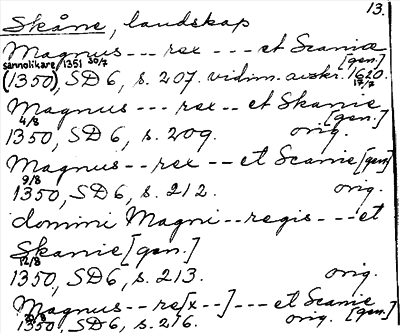 13.
Skåne, landskap
Magnus --- rex --- et Scanie
[gen.]
sannolikare 1351 30/7
(1350), SD 6, s. 207. vidim. avskr. 1620.
17/7
Magnus --- rex -- et Skanie
[gen.]
4/8
1350, SD 6, s. 209. orig.
Magnus -- rex -- et Scanie [gen]
9/8
1350, SD 6, s. 212. orig.
domini Magni -- regis --- et
Skanie [gen.]
12/8
1350, SD 6, s. 213. orig.
Magnus -- re[x --] --- et Scanie
[gen.]
1350, SD 6, s. 216. orig.